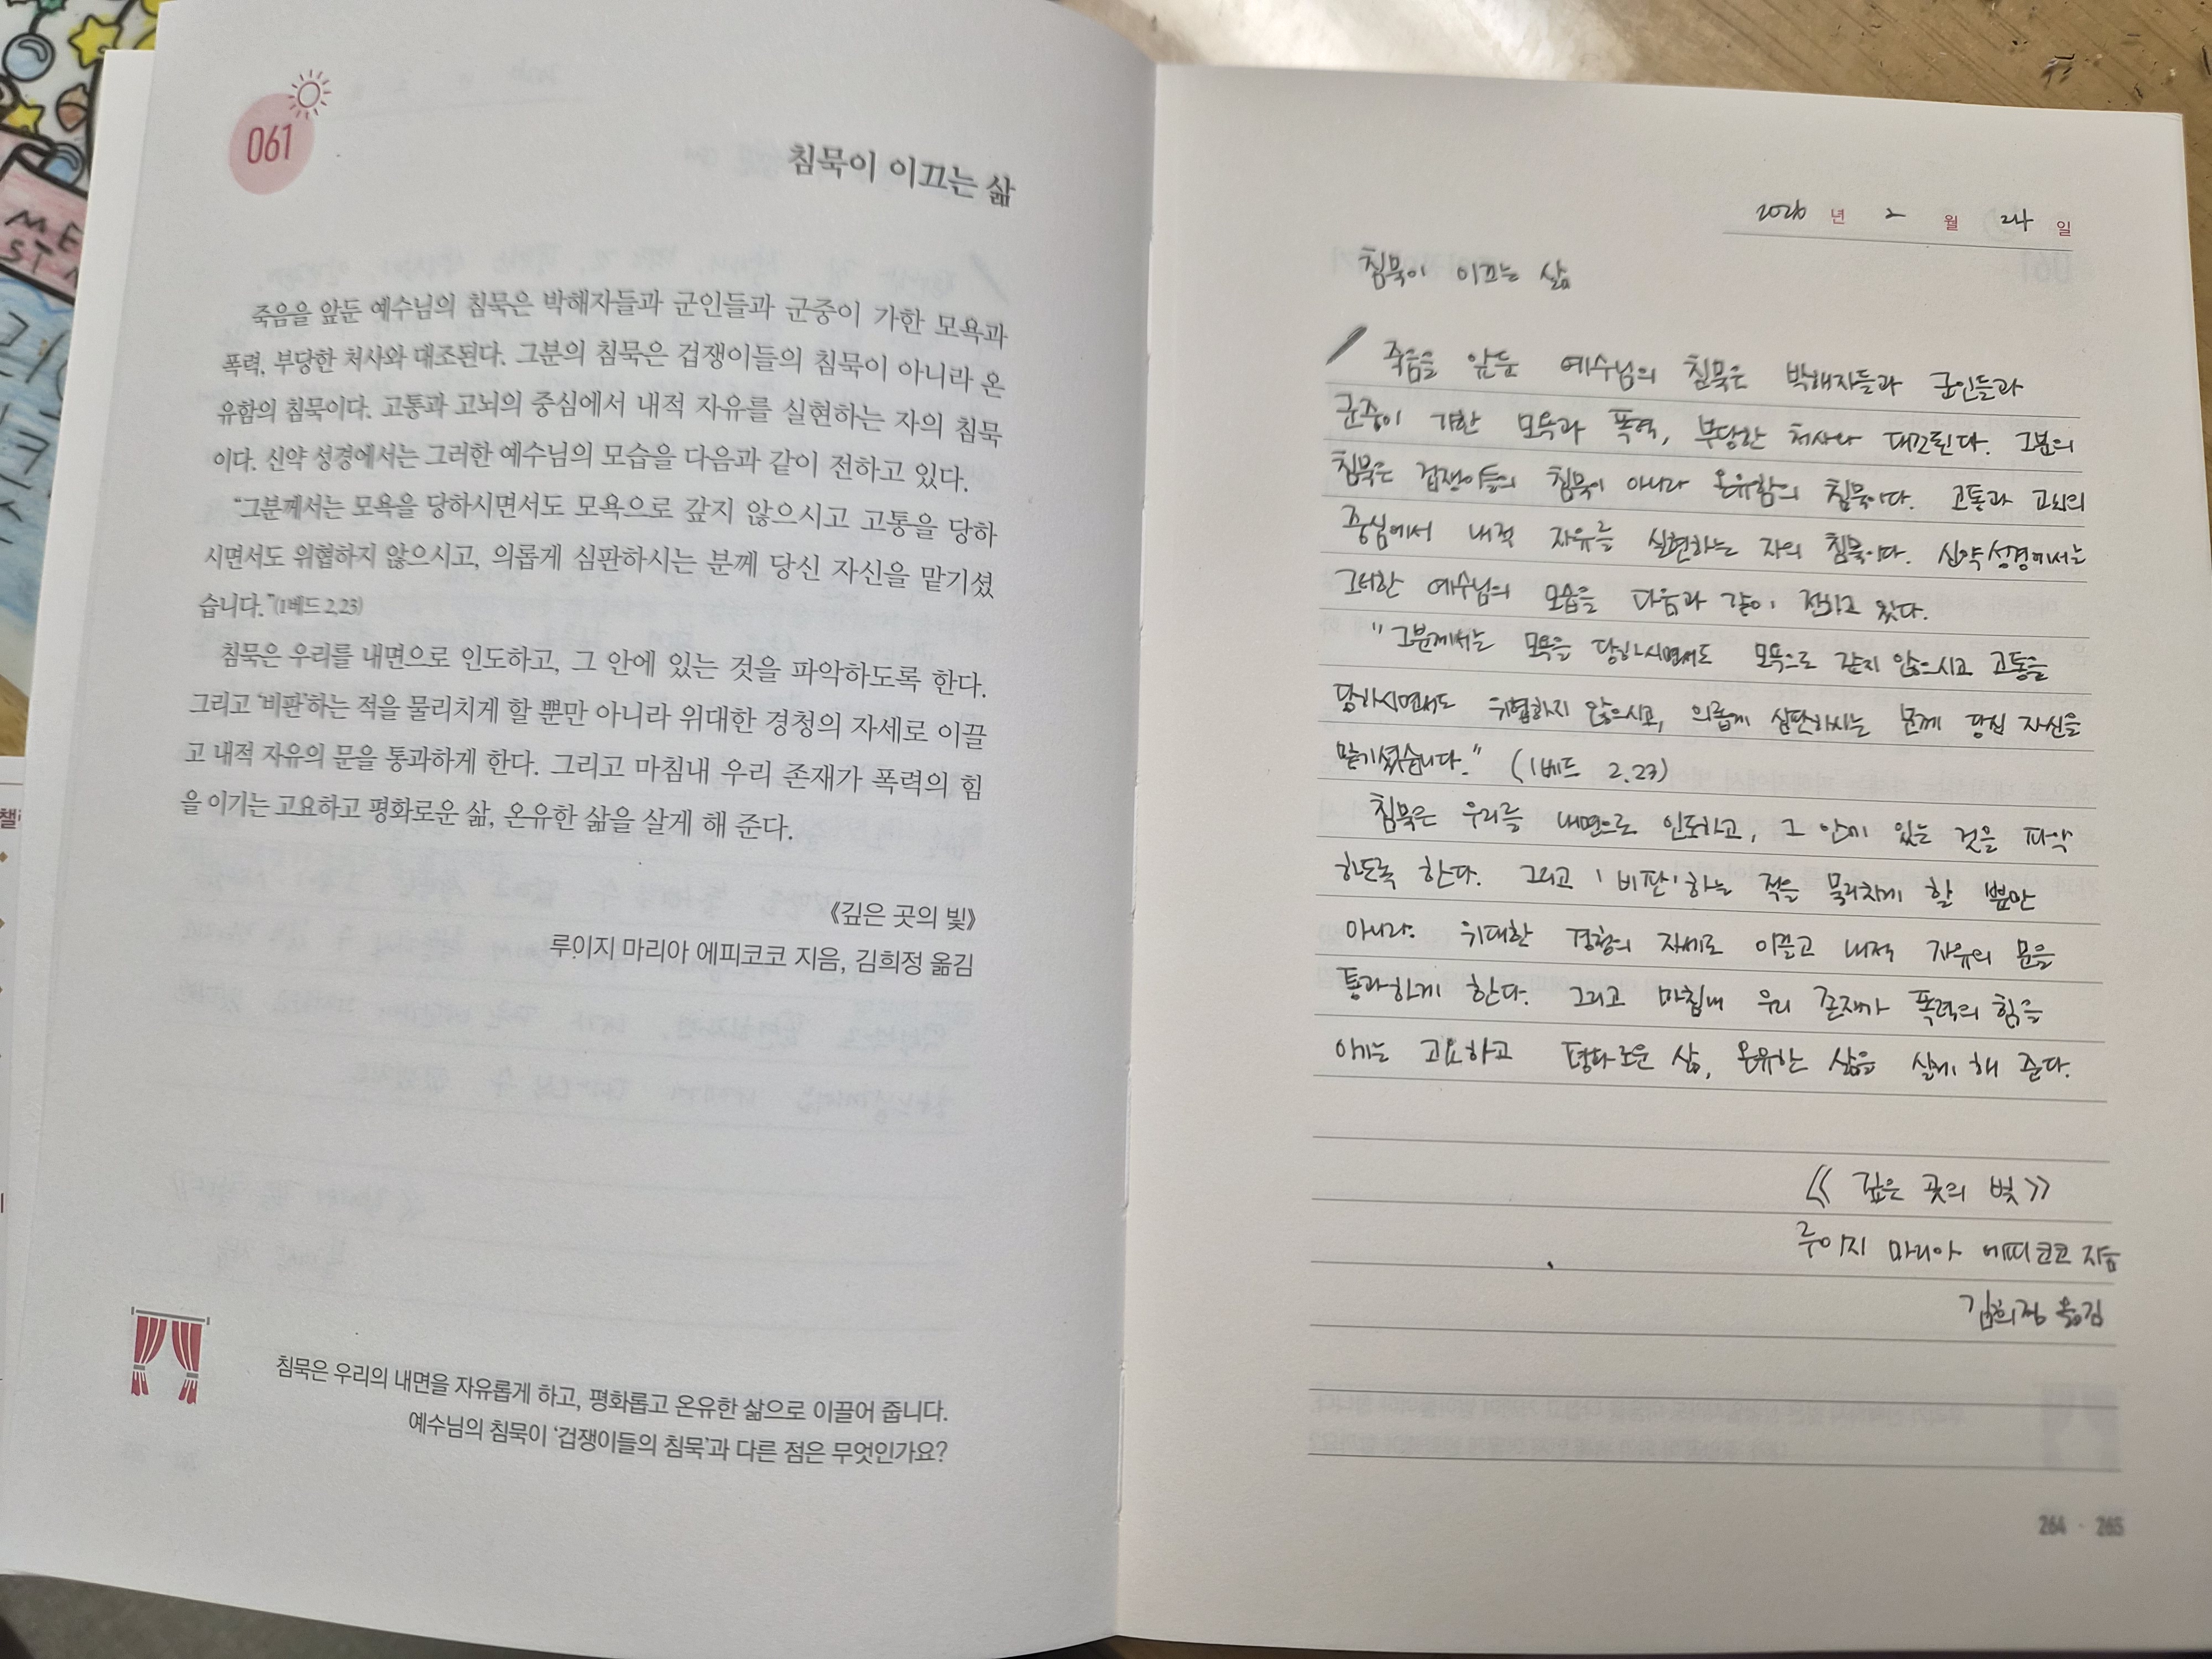 061
침묵이 이끄는 삶
죽음을 앞둔 예수님의 침묵은 박해자들과 군인들과 군중이 가한 모욕과
폭력, 부당한 처사와 대조된다. 그분의 침묵은 겁쟁이들의 침묵이 아니라 온
유함의 침묵이다. 고통과 고뇌의 중심에서 내적 자유를 실현하는 자의 침묵
이다. 신약 성경에서는 그러한 예수님의 모습을 다음과 같이 전하고 있다.
“그분께서는 모욕을 당하시면서도 모욕으로 갚지 않으시고 고통을 당하
시면서도 위협하지 않으시고, 의롭게 심판하시는 분께 당신 자신을 맡기셨
습니다.”(1베드 2,23)
침묵은 우리를 내면으로 인도하고, 그 안에 있는 것을 파악하도록 한다.
그리고 ‘비판’하는 적을 물리치게 할 뿐만 아니라 위대한 경청의 자세로 이끌
고 내적 자유의 문을 통과하게 한다. 그리고 마침내 우리 존재가 폭력의 힘
을 이기는 고요하고 평화로운 삶, 온유한 삶을 살게 해 준다.
《깊은 곳의 빛》
루이지 마리아 에피코코 지음, 김희정 옮김
침묵은 우리의 내면을 자유롭게 하고, 평화롭고 온유한 삶으로 이끌어 줍니다.
예수님의 침묵이 ‘겁쟁이들의 침묵’과 다른 점은 무엇인가요?
2026 년 2 월 24 일
침묵이 이끄는 삶
죽음을 앞둔 예수님의 침묵은 박해자들과 군인들과
군중이 가한 모욕과 폭력, 부당한 처사나 대조된다. 그분의
침묵은 겁쟁이들의 침묵이 아니라 온유함의 침묵이다. 고통과 고뇌의
중심에서 내적 자유를 실현하는 자의 침묵이다. 신약성경에서는
그러한 예수님의 모습을 다음과 같이 전하고 있다.
"그분께서는 모욕을 당하시면서도 모욕으로 갚지 않으시고 고통을
당하시면서도 위협하지 않으시고, 의롭게 심판하시는 분께 당신 자신을
맡기셨습니다." (1베드 2.23)
침묵은 우리를 내면으로 인도하고, 그 안에 있는 것을 파악
하도록 한다. 그리고 '비판'하는 적을 물리치게 할 뿐만
아니라 위대한 경청의 자세로 이끌고 내적 자유의 문을
통과하게 한다. 그리고 마침내 우리 존재가 폭력의 힘을
이기는 고요하고 평화로운 삶, 온유한 삶을 살게 해 준다.
《 깊은 곳의 빛 》
루이지 마리아 에피코코 지음
김희정 옮김
264 · 265